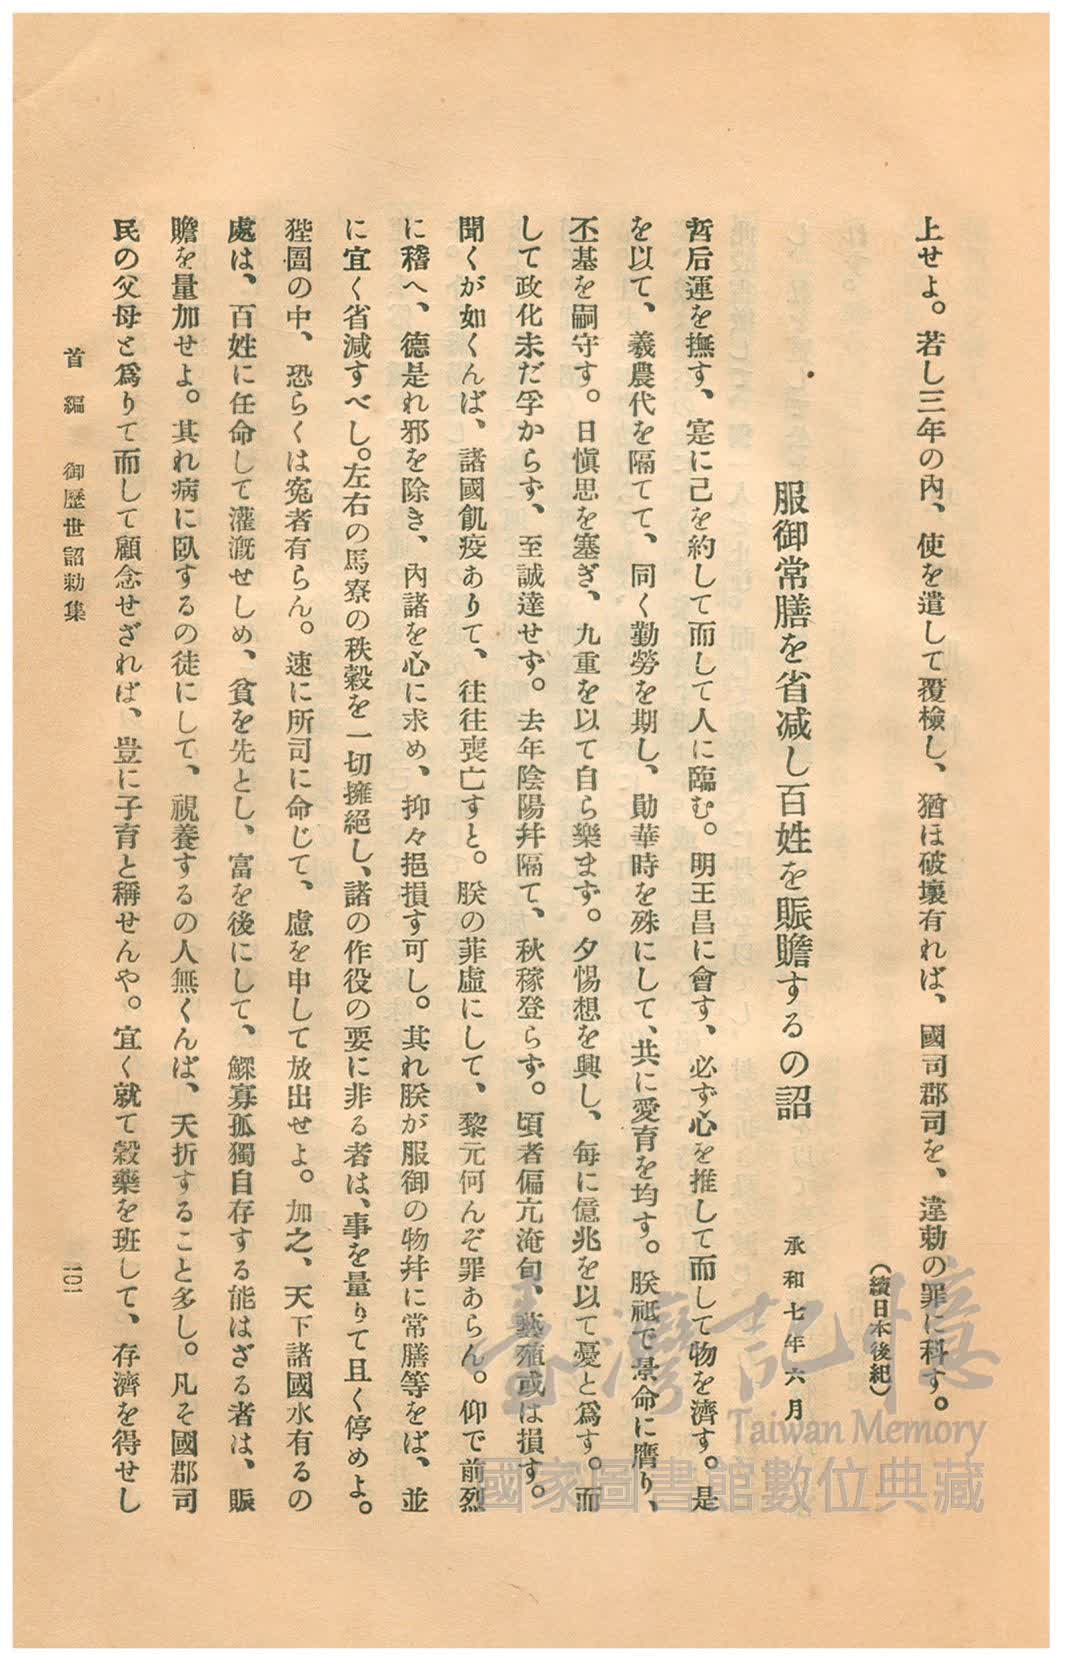 上せよ。若し三年の內、使を遣して覆檢し、猶ほ破壞有れば、國司郡司を、違勅の罪に科す。
(續日本後紀)
服御常膳を省减し百姓を賑贍するの詔
承和七年六月
哲后運を撫す、寔に己を約して而して人に臨む。明王昌に會す、必ず心を推して而して物を濟す。是
を以て、羲農代を隔てて、同く勤勞を期し、勛華時を殊にして、共に愛育を均す。朕祗で景命に膺り、
丕基を嗣守す。日愼思を塞ぎ、九重を以て自ら樂まず。夕惕想を興し、每に億兆を以て憂と爲す。而
して政化未だ孚からず、至誠達せず。去年陰陽幷隔て、秋稼登らず。頃者偏亢淹旬、藝殖或は損す。
聞くが如くんば、諸國飢疫ありて、往往喪亡すと。朕の菲虛にして、黎元何んぞ罪あらん。仰で前烈
に稽へ、德是れ邪を除き、內諸を心に求め、抑々挹損す可し。其れ朕が服御の物幷に常膳等をば、並
に宜く省減すべし。左右の馬寮の秩穀を一切擁絕し、諸の作役の要に非る者は、事を量りて且く停めよ。
狴圄の中、恐らくは寃者有らん。速に所司に命じて、慮を申して放出せよ。加之、天下諸國水有るの
處は、百姓に任命して灌漑せしめ、貧を先とし、富を後にして、鰥寡孤獨自存する能はざる者は、賑
贍を量加せよ。其れ病に臥するの徒にして、視養するの人無くんば、夭折すること多し。凡そ國郡司
民の父母と爲りて而して顧念せざれば、豈に子育と稱せんや。宜く就て穀藥を班して、存濟を得せし
首編 御歷世詔勅集
一〇一
臺灣記憶
Taiwan Memory
國家圖書館數位典藏